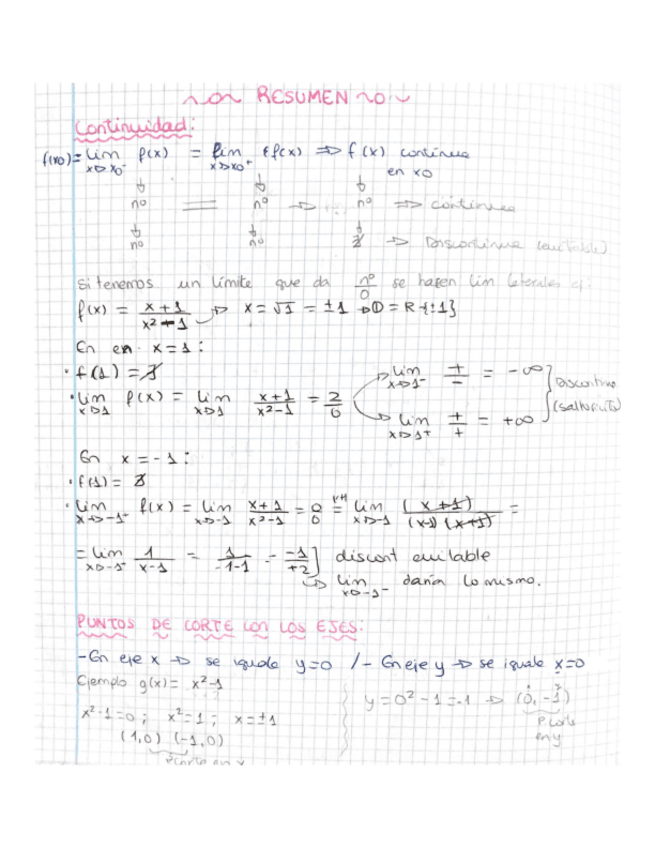 ~o~ RESUMEN ~o~
Continuidad:
f(x0) = lim x→x0⁻ f(x) = lim x→x0⁺ f(x) ⇒ f(x) continua en x0
↓ ↓ ↓
nº = nº → nº ⇒ continua
↓ ↓ ↓
nº nº ∄ → Discontinua (evitable)
si tenemos un límite que da nº/0 se hacen lim laterales
f(x) = x+1/x²-1 → x = √1 = ±1 → D = R-{±1}
En en x=1:
· f(1) = ∄
· lim x→1 f(x) = lim x→1 x+1/x²-1 = 2/0
lim x→1⁻ +/- = -∞
lim x→1⁺ +/+ = +∞
Discontinua (salto inf)
En x=-1:
· f(1) = ∄
· lim x→-1⁺ f(x) = lim x→-1 x+1/x²-1 = 0/0 = lim x→-1 (x+1)/(x-1)(x+1) =
= lim x→-1⁺ 1/x-1 = 1/-1-1 = -1/+2] discont evitable
↳ lim x→-1⁻ daría lo mismo.
PUNTOS DE CORTE CON LOS EJES:
- En eje x → se iguala y=0 / - En eje y → se iguala x=0
Ejemplo g(x) = x²-1
y = 0²-1 = -1 → (0, -1)
x²-1=0; x²=1; x=±1
P corte en y
(1,0) (-1,0)
P corte en x